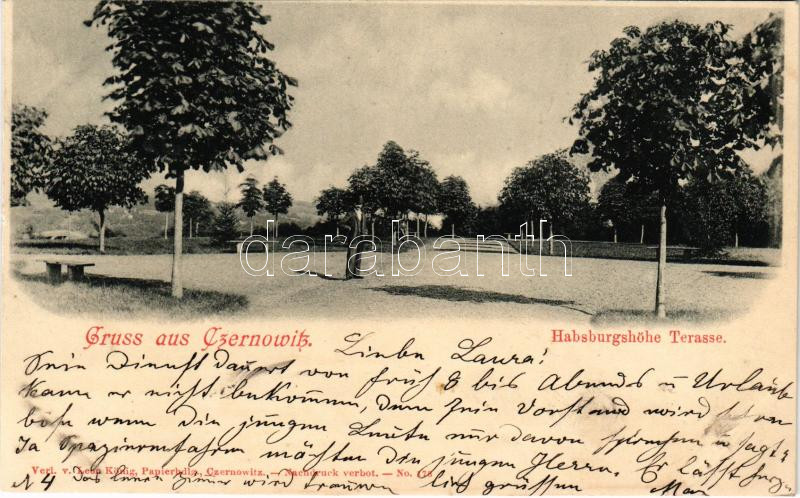 darabanth
Gruss aus Czernowitz.
Habsburgshöhe Terasse.
Liebe Laura!
Sein Dienst dauert von früh 8 bis Abends u Urlaub
kann er nicht bekommen, denn sein Vorstand wird
bös wenn die jungen Leute nur davon sprechen u sagt:
Ja Spazierenfahren möchten die jungen Herrn. Er läßt
Verl. v. Leon König, Papierhdlg., Czernowitz. — Nachdruck verbot. — No. 178
wird lies grüssen